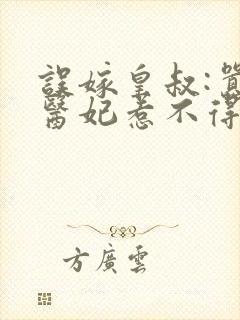 誤嫁皇叔:
醫妃惹不得
方廣雲